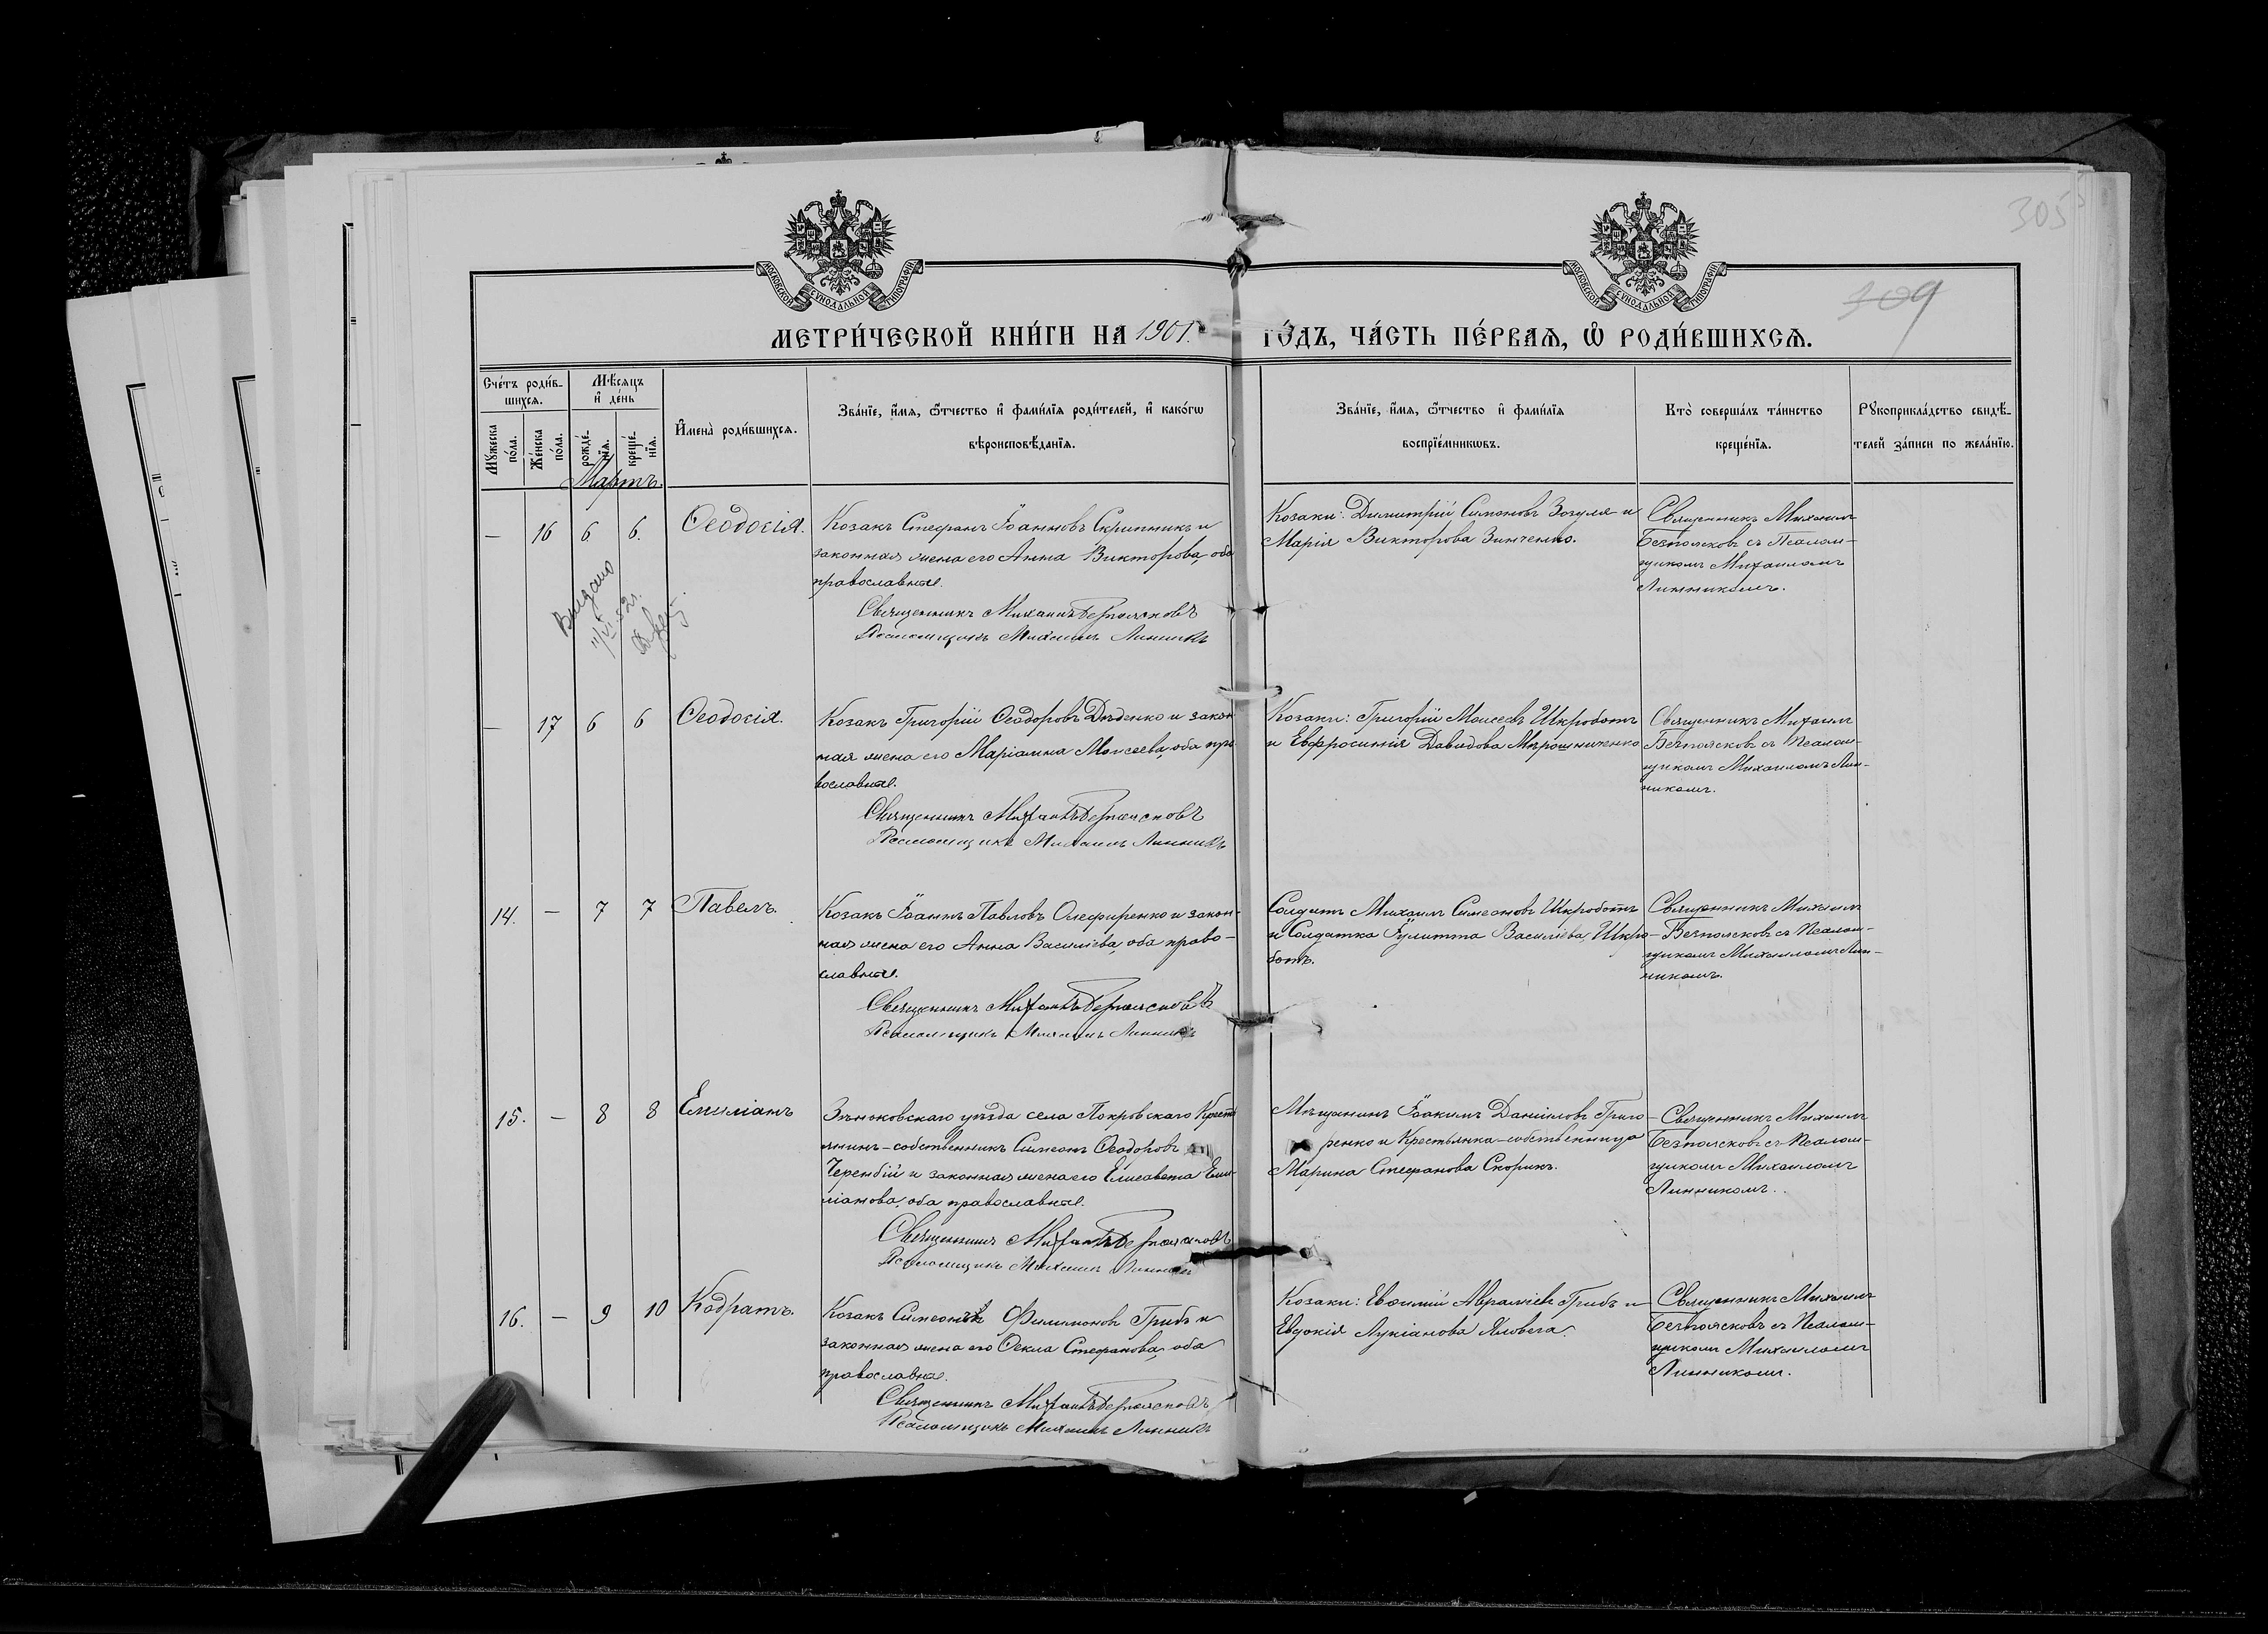 305
309
МОСКОВСКОЙ СУНОДАЛЬНОЙ ТИПОГРАФІИ
МОСКОВСКОЙ СУНОДАЛЬНОЙ ТИПОГРАФІИ
МЕТРИ́ЧЕСКОЙ КНИ́ГИ НА 1901. ГО́ДЪ, ЧА́СТЬ ПЕ́РВАѦ, Ѡ҆ РОДИ́ВШИХСѦ.
Сче́тъ роди́в-
шихсѧ.
Мꙋ́жеска по́ла.
Же́нска по́ла.
Мѣ́сѧцъ
и҆ де́нь
рожде́-
нїѧ.
креще́-
нїѧ.
И҆мена̀ роди́вшихсѧ.
Зва́нїе, и҆́мѧ, ѻ҆́тчество и҆ фами́лїѧ роди́телей, и҆ како́гѡ
вѣроисповѣ́данїѧ.
Зва́нїе, и҆́мѧ, ѻ҆́тчество и҆ фами́лїѧ
воспрїе́мникѡвъ.
Кто̀ соверша́лъ та́инство
креще́нїѧ.
Рꙋкоприкла́дство свидѣ́-
телей за́писи по жела́нїю.
Мартъ.
— 16 6 6. Ѳеодосія.
Козакъ Стефанъ Іоанновъ Скрипникъ и
законная жена его Анна Викторова, оба
православные.
Священникъ Михаилъ Безпоясковъ
Псаломщикъ Михаилъ Линникъ
Козаки: Димитрій Симоновъ Зозуля и
Марія Викторова Зинченко.
Священникъ Михаилъ
Безпоясковъ съ Псалом-
щикомъ Михаиломъ
Линникомъ.
Выдано
— 17 6 6 Ѳеодосія.
Козакъ Григорій Ѳеодоровъ Дѣденко и закон
ная жена его Маріамна Моисеева, оба пра
вославные.
Священникъ Михаилъ Безпоясковъ
Псаломщикъ Михаилъ Линникъ
Козаки: Григорій Моисеевъ Шкроботъ
и Евфросинія Давидова Мирошниченко
Священникъ Михаилъ
Безпоясковъ съ Псалом-
щикомъ Михаиломъ Лин-
никомъ.
14. — 7 7 Павелъ.
Козакъ Іоаннъ Павловъ Олефиренко и закон-
ная жена его Анна Василіева, оба право-
славные.
Священникъ Михаилъ Безпоясковъ
Псаломщикъ Михаилъ Линникъ
Солдатъ Михаилъ Симеоновъ Шкроботъ
и Солдатка Іулитта Василіева Шкро-
ботъ.
Священникъ Михаилъ
Безпоясковъ съ Псалом-
щикомъ Михаиломъ Лин-
никомъ.
15. — 8 8 Емиліанъ
Зѣньковскаго уѣзда села Покровскаго Крест
янинъ-собственникъ Симеонъ Ѳеодоровъ
и законная жена его Елисавета Еми-
ліанова, оба православные.
Священникъ Михаилъ Безпоясковъ
Псаломщикъ Михаилъ Линникъ
Мѣщанинъ Іоакимъ Даніиловъ Григо-
ренко и Крестьянка-собственница
Марина Стефанова Скорикъ.
Священникъ Михаилъ
Безпоясковъ съ Псалом-
щикомъ Михаиломъ
Линникомъ.
16. — 9 10 Кодратъ.
Козакъ Симеонъ Филимоновъ Грибъ и
законная жена его Ѳекла Стефанова, оба
православные.
Священникъ Михаилъ Безпоясковъ
Псаломщикъ Михаилъ Линникъ
Козаки: Евѳимій Авраміевъ Грибъ и
Евдокія Лукіанова Яловега.
Священникъ Михаилъ
Безпоясковъ съ Псалом-
щикомъ Михаиломъ
Линникомъ.